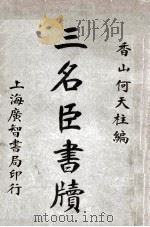 香山何天柱編
三名臣書牘
上海廣智書局印行
www.youhaosuda.com